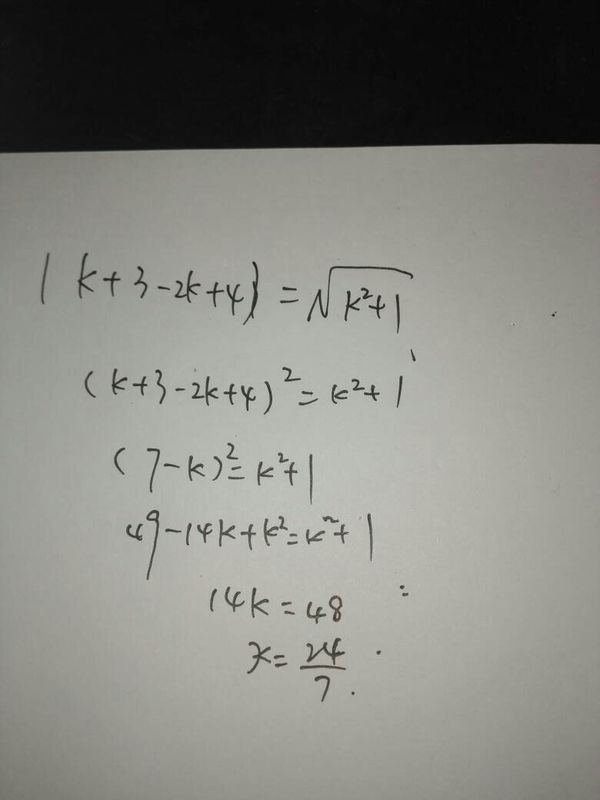 |k+3-2k+4|=√(k²+1)
(k+3-2k+4)²=k²+1
(7-k)²=k²+1
49-14k+k²=k²+1
14k=48
k=24/7.